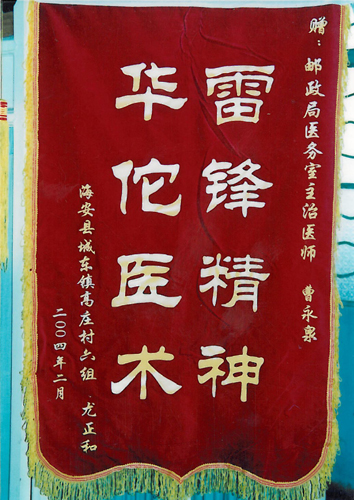 赠：邮政局医务室主治医师 曹永泉
雷锋精神
华佗医术
海安县城东镇高庄村六组 龙正和
二00四年二月